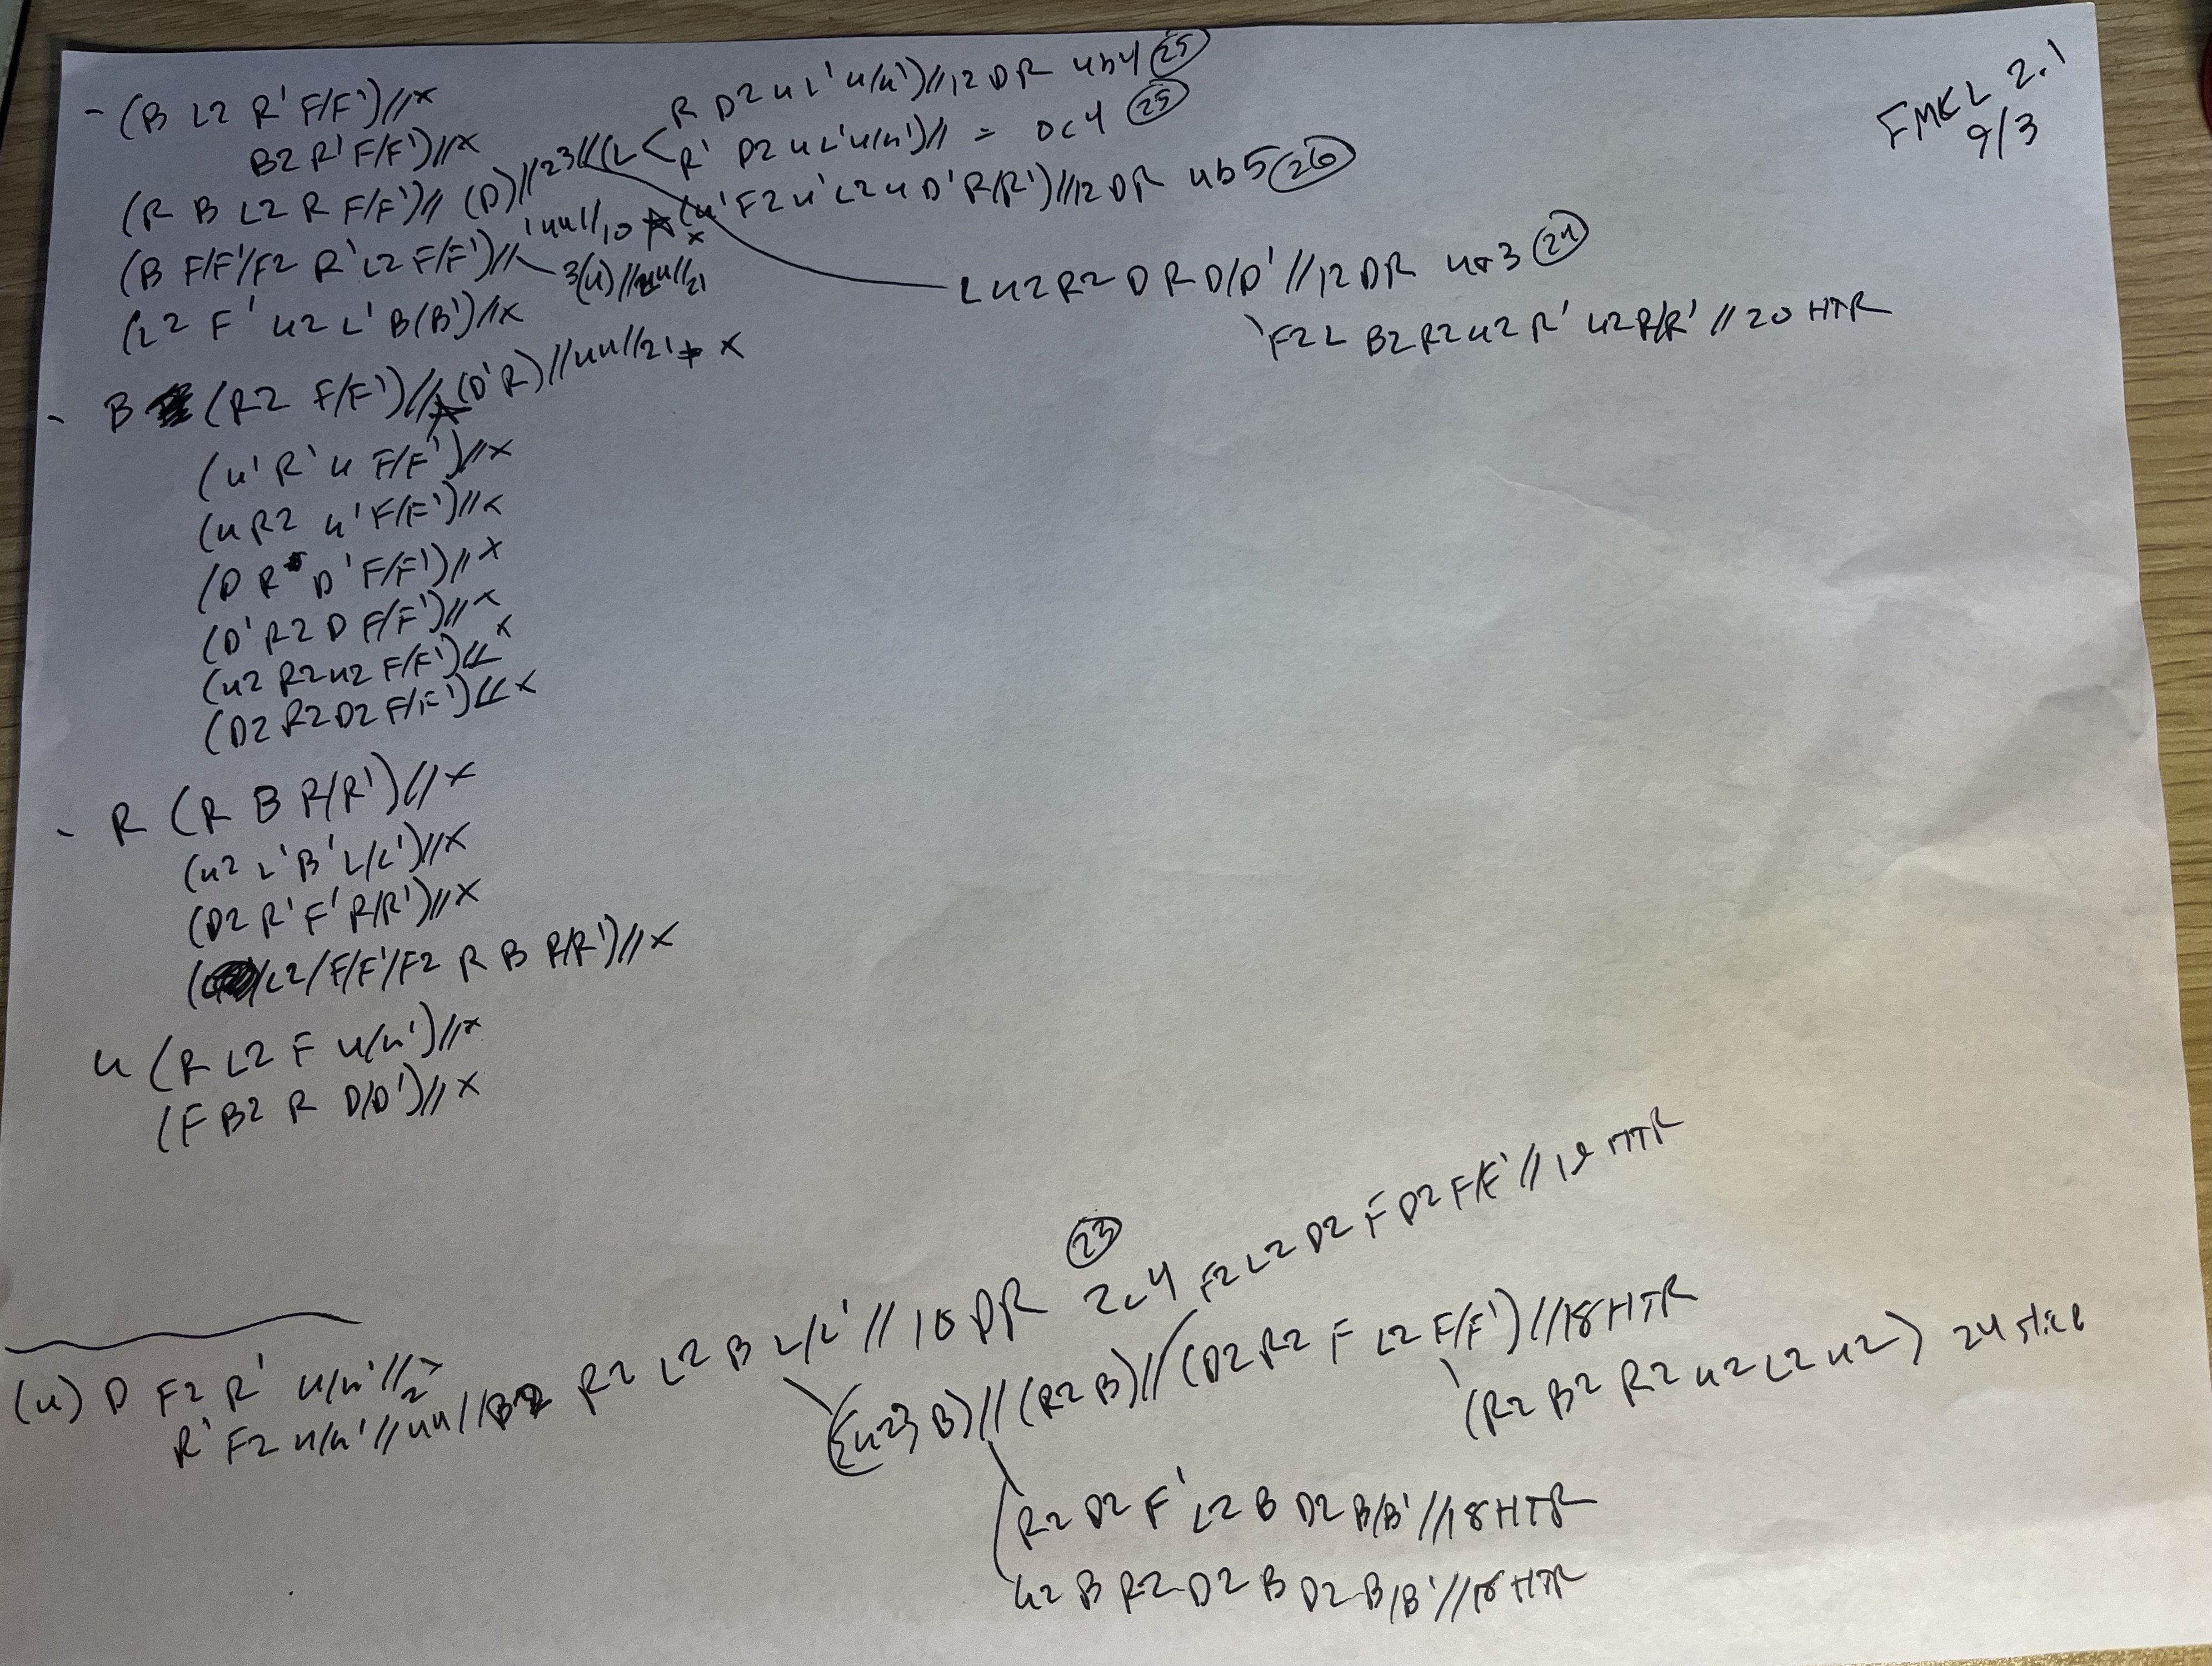 FMCL 2.1
9/3
- (B L2 R' F/F')//x
B2 R' F/F')//x
(R B L2 R F/F')// (D)//23//(L < R D2 U L' U/U')//12 DR 4b4 (25)
R' D2 U L' U/U')// = 0c4 (25)
(U' F2 U' L2 U D' R/R')//12 DR 4b5 (26)
(B F/F'/F2 R' L2 F/F')//
3(U)//
L U2 R2 D R D/D' //12 DR 4a3 (24)
F2 L B2 R2 U2 R' U2 R/R' // 20 HTR
(L2 F' U2 L' B(B')//x
- B (R2 F/F')// (D'R)//4U//21 x
(U' R' U F/F')//x
(U R2 U' F/F')//x
(D R D' F/F')//x
(D' R2 D F/F')//x
(U2 R2 U2 F/F')//x
(D2 R2 D2 F/F')//x
- R (R B R/R')//x
(U2 L' B' L/L')//x
(D2 R' F' R/R')//x
(L2/F/F'/F2 R B R/R')//x
U (R L2 F U/U')//x
(F B2 R D/D')//x
(U) D F2 R' U/U'//
R' F2 U/U'//4U//B2 R2 L2 B L/L' // 10 DR 2c4 (23)
F2 L2 D2 F D2 F/F' // 19 HTR
({U2} B)//(R2 B)//(D2 R2 F L2 F/F')//18 HTR
(R2 B2 R2 U2 L2 U2) 24 slice
R2 D2 F' L2 B D2 B/B'//18 HTR
U2 B R2 D2 B D2 B/B'//18 HTR